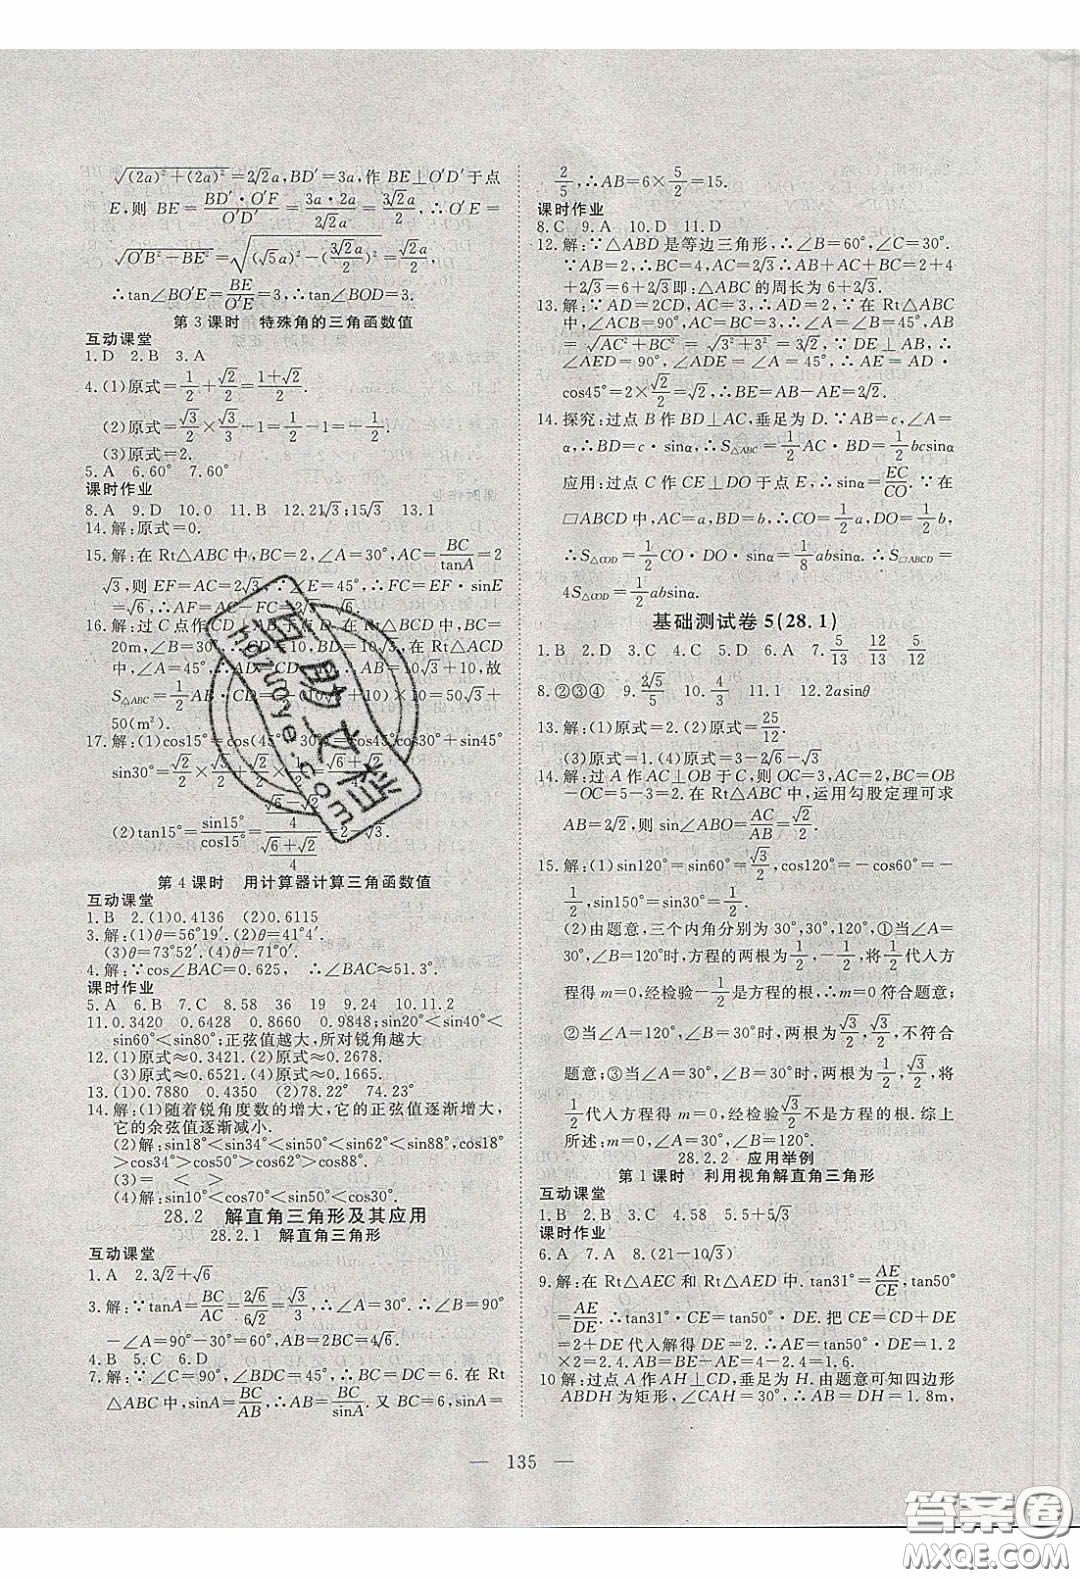 √((2a)²+(2a)²)=2√2a,BD′=3a,作 BE⊥O′D′于点
E,则 BE=BD′·O′F/O′D′=3a·2a/2√2a=3√2a/2,∴O′E=
√(O′B²-BE²)=√((√5a)²-(3√2a/2)²)=√2a/2.
∴tan∠BO′E=BE/O′E=3,∴tan∠BOD=3.
第 3 课时 特殊角的三角函数值
互动课堂
1.D 2.B 3.A
4.(1)原式=1/2+√2/2=(1+√2)/2.
(2)原式=√3/2×√3/3-1=1/2-1=-1/2.
(3)原式=2.
5.A 6.60° 7.60°
课时作业
8.A 9.D 10.0 11.B 12.21√3;15√3 13.1
14.解:原式=0.
15.解:在 Rt△ABC 中,BC=2,∠A=30°,AC=BC/tanA=2
√3,则 EF=AC=2√3,∵∠E=45°,∴FC=EF·sinE
=√6,∴AF=AC-FC=2√3-√6.
16.解:过 C 点作 CD⊥AB于点 D. 在 Rt△BCD 中,BC=
20m,
10√3m,
S△ABC=1/2AB·CD=
50(m²).
17.解:(1)cos15°=cos(45°-30°)=cos45°cos30°+sin45°
sin30°=√2/2×√3/2+√2/2×1/2=(√6+√2)/4.
(2)tan15°=sin15°/cos15°=((√6-√2)/4)/((√6+√2)/4)=2-√3.
第 4 课时 用计算器计算三角函数值
互动课堂
1.B 2.(1)0.4136 (2)0.6115
3.解:(1)θ=56°19′. (2)θ=41°4′.
(3)θ=73°52′. (4)θ=71°0′.
4.解:∵cos∠BAC=0.625, ∴∠BAC≈51.3°.
课时作业
5.A 6.B 7.C 8.58 36 19 9.24 10.11.2
11.0.3420 0.6428 0.8660 0.9848;sin20°<sin40°<
sin60°<sin80°;正弦值越大,所对锐角越大
12.(1)原式≈0.3421. (2)原式≈0.2678.
(3)原式≈0.6521. (4)原式≈0.1665.
13.(1)0.7880 0.4350 (2)78.22° 74.23°
14.解:(1)随着锐角度数的增大,它的正弦值逐渐增大,
它的余弦值逐渐减小.
(2)解:sin18°<sin34°<sin50°<sin62°<sin88°,cos18°
>cos34°>cos50°>cos62°>cos88°.
(3)= < >
(4)解:sin10°<cos70°<sin30°<sin50°<cos30°.
28.2 解直角三角形及其应用
28.2.1 解直角三角形
互动课堂
1.A 2.3√2+√6
3.解:∵tanA=BC/AC=2√6/6√2=√3/3,∴∠A=30°,∴∠B=90°
-∠A=90°-30°=60°,AB=2BC=4√6.
4.B 5.C 6.D
7.解:∵∠C=90°,∠BDC=45°,∴BC=DC=6. 在 Rt
△ABC 中,sinA=BC/AB,∴AB=BC/sinA. 又 BC=6,sinA=
2/5,∴AB=6×5/2=15.
课时作业
8.C 9.A 10.D 11.D
12.解:∵△ABD 是等边三角形,∴∠B=60°,∠C=30°.
∴BC=4,AC=2√3∴AB+AC+BC=2+4
+2√3=6+2√3即:△ABC 的周长为 6+2√3.
13.解:∵AD=2CD,AC=3,∴AD=2,∵在 Rt△ABC
中,∠ACB=90°,AC=BC=3,∴∠A=∠B=45°,AB
=√(AC²+BC²)=√(3²+3²)=3√2,∵DE⊥AB,∴
∠AED=90°,∠ADE=∠A=45°,∴AE=AD·
cos45°=2×√2/2=√2,∴BE=AB-AE=2√2.
14.探究:过点 B 作 BD⊥AC,垂足为 D.∵AB=c,∠A=
α,∴BD=c·sinα,∴S△ABC=1/2AC·BD=1/2bcsinα
应用:过点 C 作 CE⊥DO 于点 E,∴sinα=EC/CO. ∵在
□ABCD 中,AC=a,BD=b,∴CO=1/2a,DO=1/2b,
∴S△COD=1/2CO·DO·sinα=1/8absinα,∴S□ABCD=
4S△COD=1/2absinα.
基础测试卷 5(28.1)
1.B 2.D 3.C 4.C 5.D 6.A 7.5/13 12/13 5/12
8.②③④ 9.2√5/5 10.4/3 11.1 12.2asinθ
13.解:(1)原式=2. (2)原式=25/12.
(3)原式=1. (4)原式=
14.解:过 A 作 AC⊥OB 于 C,则 AC=2,BC=OB
-OC=5-3=2. 在 Rt△ABC 中,运用勾股定理可求
AB=2√2,则 sin∠ABO=AC/AB=√2/2.
15.解:(1)sin120°=sin60°=√3/2,cos120°=-cos60°=-
1/2,sin150°=sin30°=1/2.
(2)由题意,三个内角分别为 30°,30°,120°,①当∠A=
30°,∠B=120°时,方程的两根为1/2,-1/2,将1/2代入方
程得 m=0,经检验-1/2是方程的根,∴m=0 符合题意;
②当∠A=120°,∠B=30°时,两根为√3/2,√3/2,不符合
题意;③当∠A=30°,∠B=30°时,两根为1/2,√3/2,将
1/2代入方程得 m=0,经检验√3/2不是方程的根. 综上
所述:m=0,∠A=30°,∠B=120°.
28.2.2 应用举例
第 1 课时 利用视角解直角三角形
互动课堂
1.B 2.B 3.C 4.58 5.5+5√3
课时作业
6.A 7.A 8.(21-10√3)
9.解:在 Rt△AEC 和 Rt△AED 中. tan31°=AE/CE,tan50°
=AE/DE. ∴tan31°·CE=tan50°·DE. 把 CE=CD+DE
=2+DE 代入解得 DE=2,∴AE=tan50°·DE=1.2
×2=2.4. AB=BE-AE=4-2.4=1.6.
10 解:过点 A 作 AH⊥CD,垂足为 H. 由题意可知四边形
ABDH 为矩形,∠CAH=30°,∴AB=DH=1.8m,
— 135 —
互助文档
hdzuoye.com
答案圈
MXQE.COM